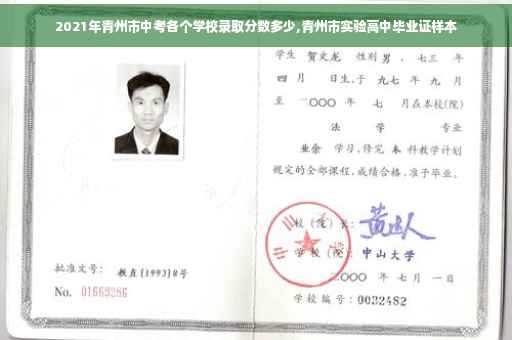 2021年青州市中考各个学校录取分数多少,青州市实验高中毕业证样本
学生 贺文龙 性别 男 、七三 年
四 月 日生,于 九七 年 九 月
至 二〇〇〇 年 七 月在本校(院)
法 学 专业
业余 学习,修完 本 科教学计划
规定的全部课程,成绩合格,准予毕业。
校 (院) 长:
学 校 (院): 中山大学
二〇〇〇 年 七 月 一 日
学校编号: 0032482
批准文号: 教直(1993)8号
No. 01663286